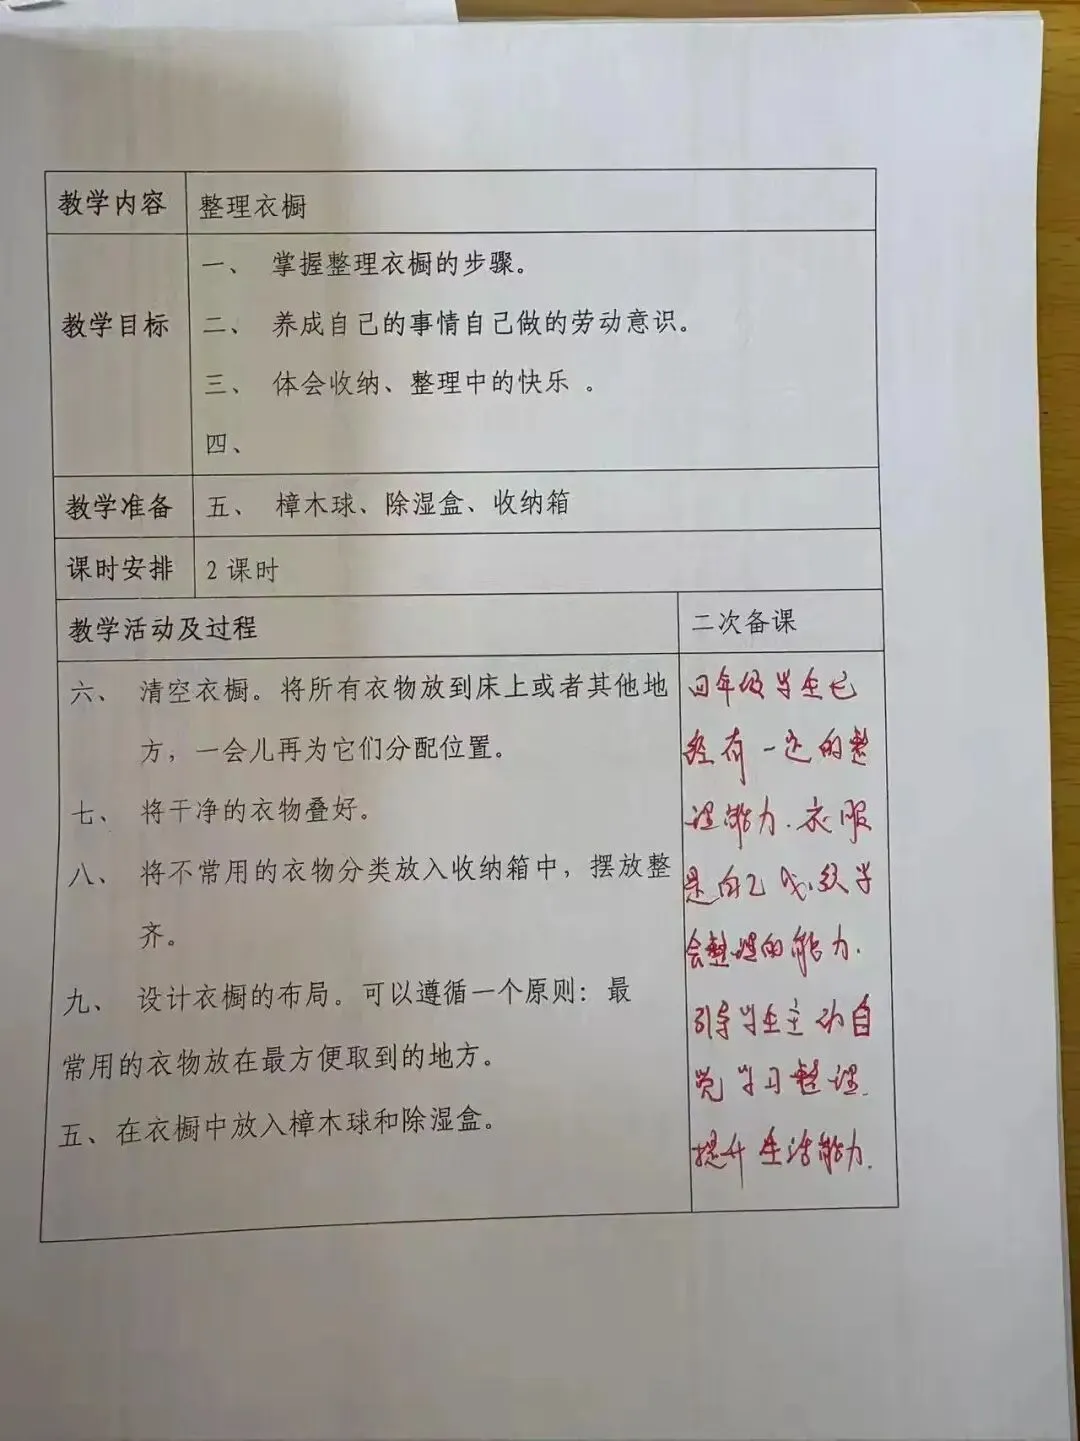 教学内容 整理衣橱
一、 掌握整理衣橱的步骤。
教学目标 二、 养成自己的事情自己做的劳动意识。
三、 体会收纳、整理中的快乐 。
四、
教学准备 五、 樟木球、除湿盒、收纳箱
课时安排 2课时
教学活动及过程
六、 清空衣橱。将所有衣物放到床上或者其他地
方，一会儿再为它们分配位置。
七、 将干净的衣物叠好。
八、 将不常用的衣物分类放入收纳箱中，摆放整
齐。
九、 设计衣橱的布局。可以遵循一个原则：最
常用的衣物放在最方便取到的地方。
五、在衣橱中放入樟木球和除湿盒。
二次备课
四年级学生已
经有一定的整
理能力.衣服
是自己 学
会整理的能力.
引导学生主动自
觉学习整理.
提升生活能力.